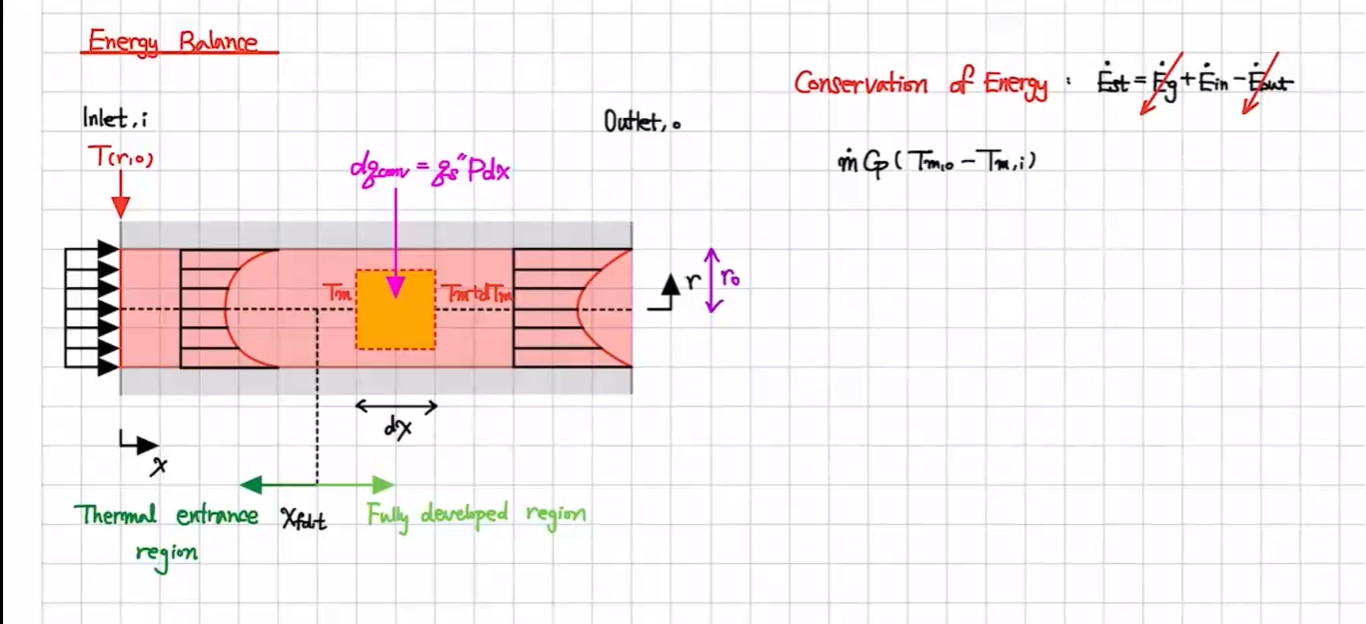 Energy Balance
Conservation of Energy : Ėst = Ėg + Ėin - Ėout
Inlet, i
Outlet, o
T(r,0)
dqconv = qs"Pdx
ṁ Cp ( Tm,o - Tm,i )
Tm
Tm+dTm
r
ro
dx
x
Thermal entrance
region
xfd,t
Fully developed region